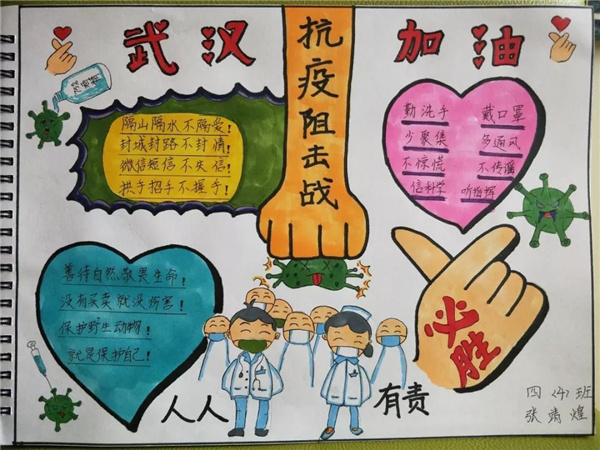 武汉
加油
抗疫阻击战
隔山隔水不隔爱!
封城封路不封情!
微信短信不失信!
拱手招手不握手!
勤洗手 戴口罩
少聚集 多通风
不惊慌 不传谣
信科学 听指挥
善待自然,敬畏生命!
没有买卖就没伤害!
保护野生动物!
就是保护自己!
必胜
人人
有责
四〈4〉班
张靖煌